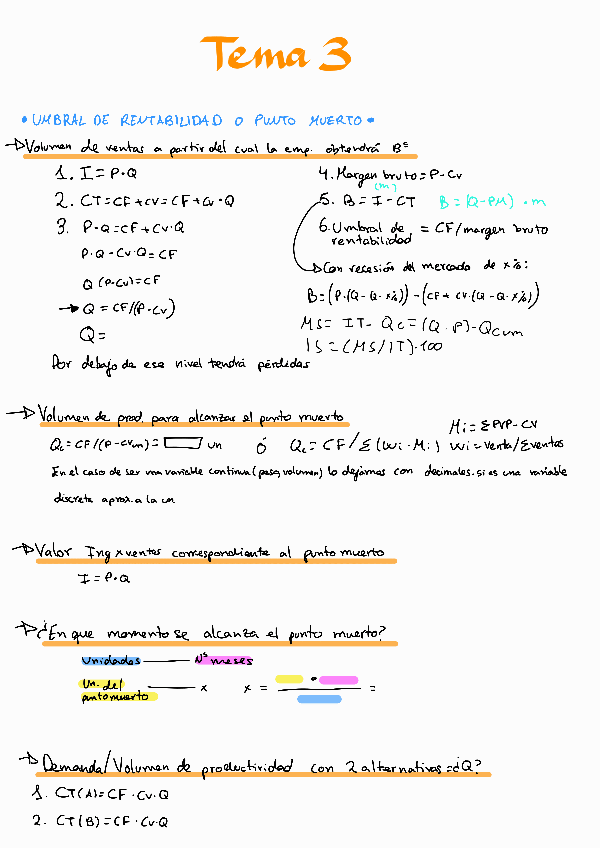 Tema 3
• UMBRAL DE RENTABILIDAD O PUNTO MUERTO •
→ Volumen de ventas a partir del cual la emp. obtendrá Bº
1. I = P·Q
2. CT = CF + CV = CF + Cv · Q
3. P·Q = CF + Cv·Q
P·Q - Cv·Q = CF
Q (P-Cv) = CF
→ Q = CF/(P-Cv)
Q =
Por debajo de ese nivel tendrá pérdidas
4. Margen bruto = P - Cv
(m)
5. B = I - CT B = (Q - PM) · m
6. Umbral de rentabilidad = CF/margen bruto
→ Con recesión del mercado de x%:
B = (P·(Q - Q·x%)) - (CF + CV·(Q - Q·x%))
MS = IT - Qc = (Q·P) - Qcum
IS = (MS/IT)·100
→ Volumen de prod. para alcanzar el punto muerto
Qc = CF/(P-Cvun) = un ó Qc = CF/Σ(Wi·Mi)
Mi = ΣPVP-CV
Wi = Venta/Σventas
En el caso de ser una variable continua (peso, volumen) lo dejamos con decimales. si es una variable
discreta aprox. a la un
→ Valor Ing x ventas correspondiente al punto muerto
I = P·Q
→ ¿En que momento se alcanza el punto muerto?
Unidades — Nº meses
Un. del punto muerto — x x = • =
→ Demanda/Volumen de productividad con 2 alternativas = ¿Q?
1. CT(A) = CF · Cv·Q
2. CT(B) = CF · Cv·Q